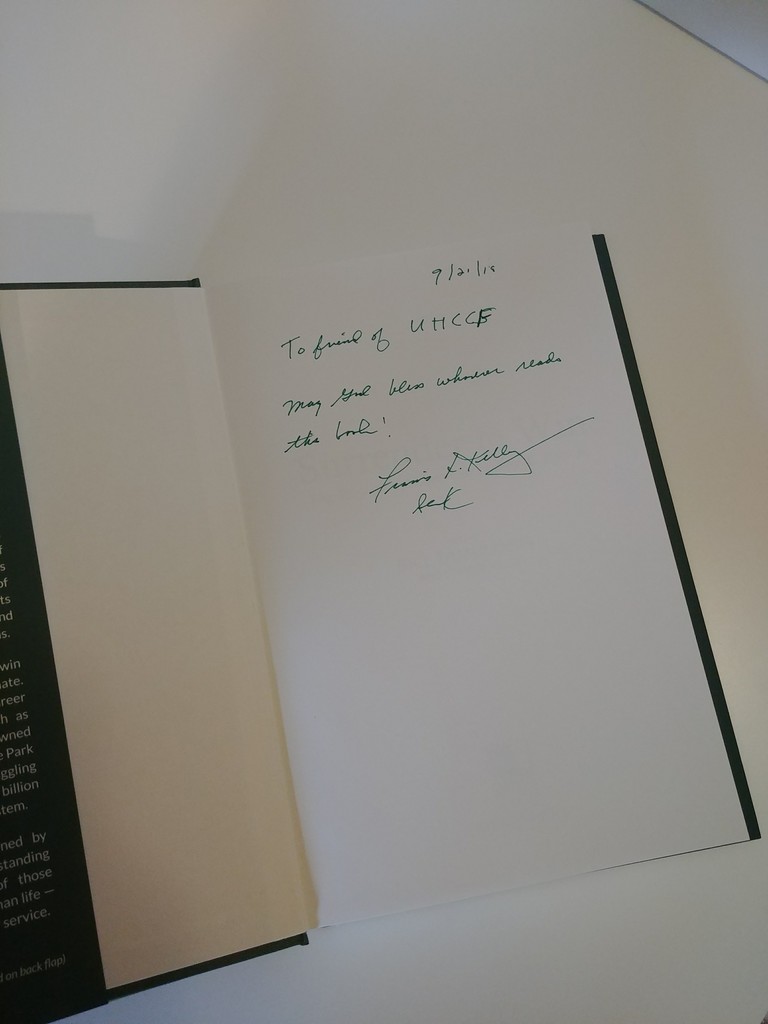 f
s
of
ts
nd
s.
win
ate.
reer
h as
wned
e Park
ggling
billion
tem.
ned by
standing
of those
an life —
service.
d on back flap)
9/21/18
To friend of UHCCF
May God bless whoever reads
this book!
Francis D. Kelly